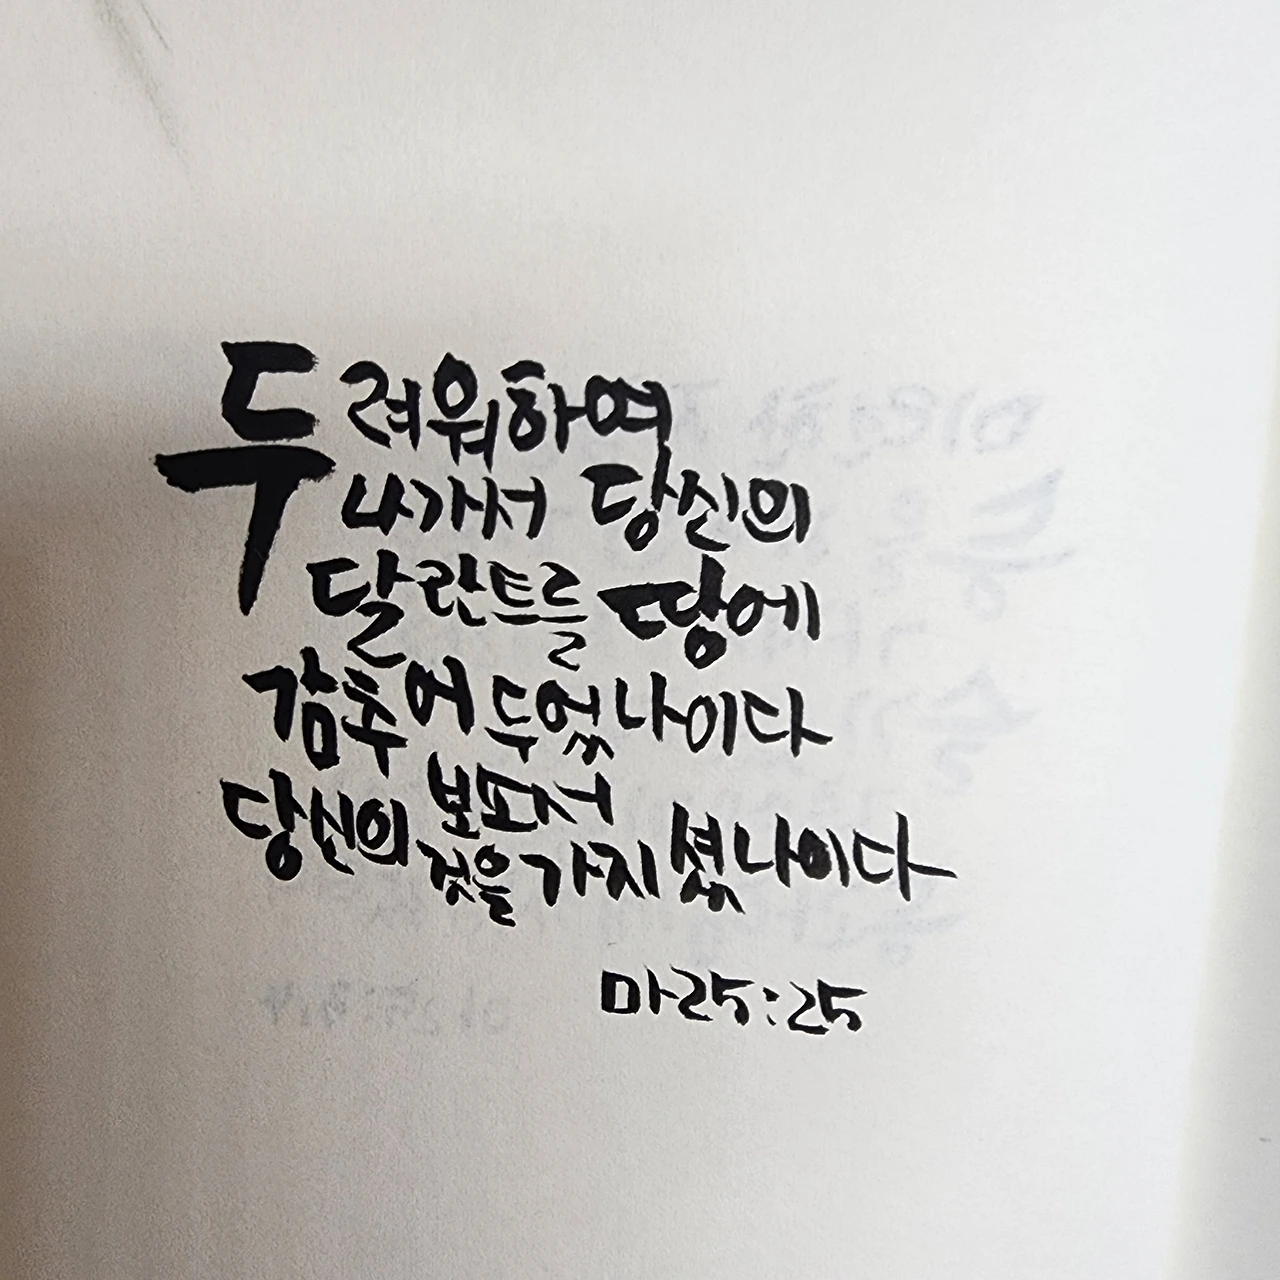 두려워하여
나가서 당신의
달란트를 땅에
감추어 두었나이다
보소서
당신의 것을 가지셨나이다
마25:25